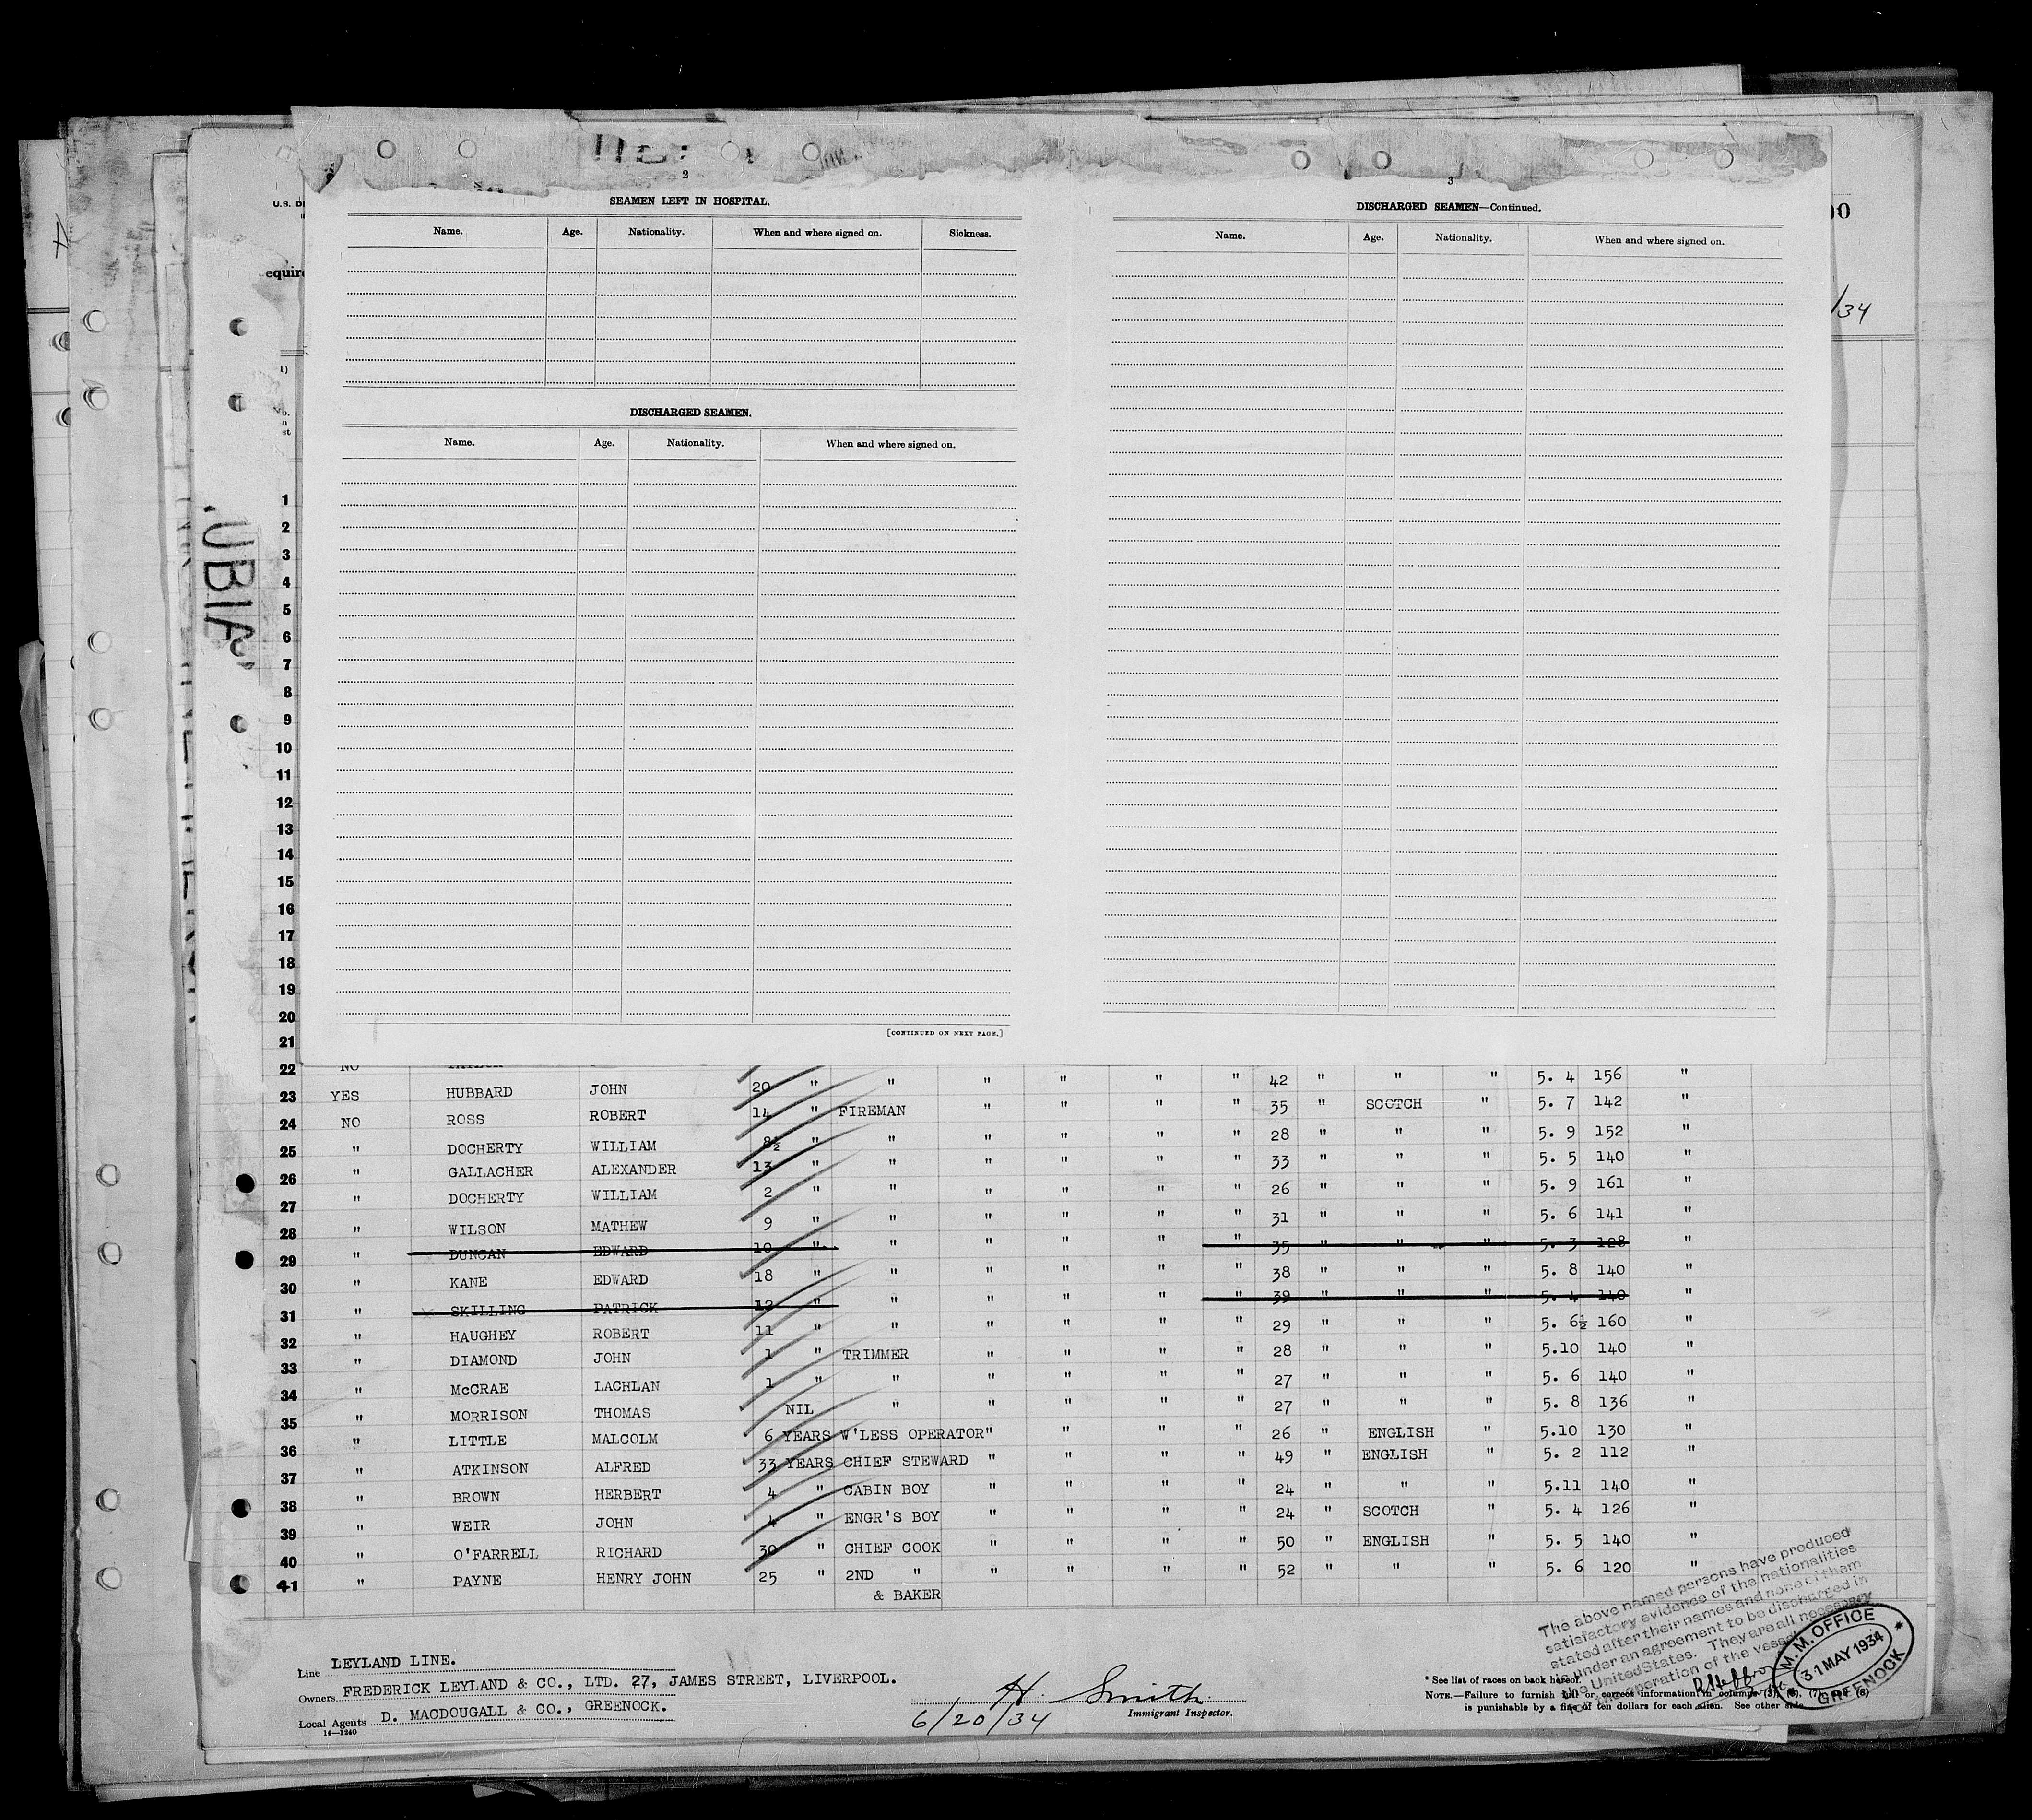 2
SEAMEN LEFT IN HOSPITAL.
Name. Age. Nationality. When and where signed on. Sickness.
DISCHARGED SEAMEN.
Name. Age. Nationality. When and where signed on.
[CONTINUED ON NEXT PAGE.]
3
DISCHARGED SEAMEN—Continued.
Name. Age. Nationality. When and where signed on.
U.S. D
equire
00
/34
UBIA
1
2
3
4
5
6
7
8
9
10
11
12
13
14
15
16
17
18
19
20
21
22 NO " " " " " " 42 " " " 5. 4 156 "
23 YES HUBBARD JOHN 20 " " " " " " 42 " " " 5. 4 156 "
24 NO ROSS ROBERT 14 " FIREMAN " " " " 35 " SCOTCH " 5. 7 142 "
25 " DOCHERTY WILLIAM 8½ " " " " " " 28 " " " 5. 9 152 "
26 " GALLACHER ALEXANDER 13 " " " " " " 33 " " " 5. 5 140 "
27 " DOCHERTY WILLIAM 2 " " " " " " 26 " " " 5. 9 161 "
28 " WILSON MATHEW 9 " " " " " " 31 " " " 5. 6 141 "
29 " DUNCAN EDWARD 10 " " " " " " 35 " " " 5. 3 128 "
30 " KANE EDWARD 18 " " " " " " 38 " " " 5. 8 140 "
31 " SKILLING PATRICK 12 " " " " " " 39 " " " 5. 4 140 "
32 " HAUGHEY ROBERT 11 " " " " " " 29 " " " 5. 6½ 160 "
33 " DIAMOND JOHN 1 " TRIMMER " " " " 28 " " " 5.10 140 "
34 " McCRAE LACHLAN 1 " " " " " " 27 " " " 5. 6 140 "
35 " MORRISON THOMAS NIL " " " " " 27 " " " 5. 8 136 "
36 " LITTLE MALCOLM 6 YEARS W'LESS OPERATOR " " " " 26 " ENGLISH " 5.10 130 "
37 " ATKINSON ALFRED 33 YEARS CHIEF STEWARD " " " " 49 " ENGLISH " 5. 2 112 "
38 " BROWN HERBERT 4 " CABIN BOY " " " " 24 " " " 5.11 140 "
39 " WEIR JOHN 4 " ENGR'S BOY " " " " 24 " SCOTCH " 5. 4 126 "
40 " O'FARRELL RICHARD 30 " CHIEF COOK " " " " 50 " ENGLISH " 5. 5 140 "
41 " PAYNE HENRY JOHN 25 " 2ND " " " " " 52 " " " 5. 6 120 "
& BAKER
Line LEYLAND LINE.
Owners FREDERICK LEYLAND & CO., LTD. 27, JAMES STREET, LIVERPOOL.
Local Agents D. MACDOUGALL & CO., GREENOCK.
14—1240
H. Smith
Immigrant Inspector.
6/20/34
The above named persons have produced
satisfactory evidence of the nationalities
stated after their names and none of them
is under an agreement to be discharged in
the United States. They are all necessary
to the operation of the vessel
M. M. OFFICE
31 MAY 1934
GREENOCK
* See list of races on back hereof.
NOTE.—Failure to furnish full or correct information in columns (3), (6), (7) or (8)
is punishable by a fine of ten dollars for each alien. See other side.